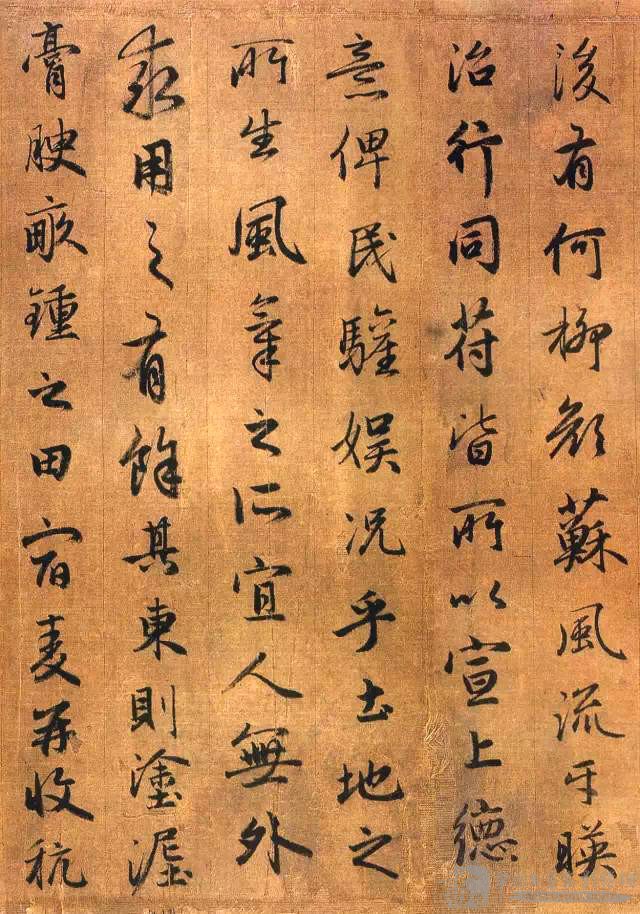 後有何柳顏蘇風流互暎
治行同苻皆所以宣上德
意俾民驩娛況乎土地之
所生風氣之所宜人無外
求用之有餘其東則塗泥
膏腴畝鍾之田宿麥再收秔